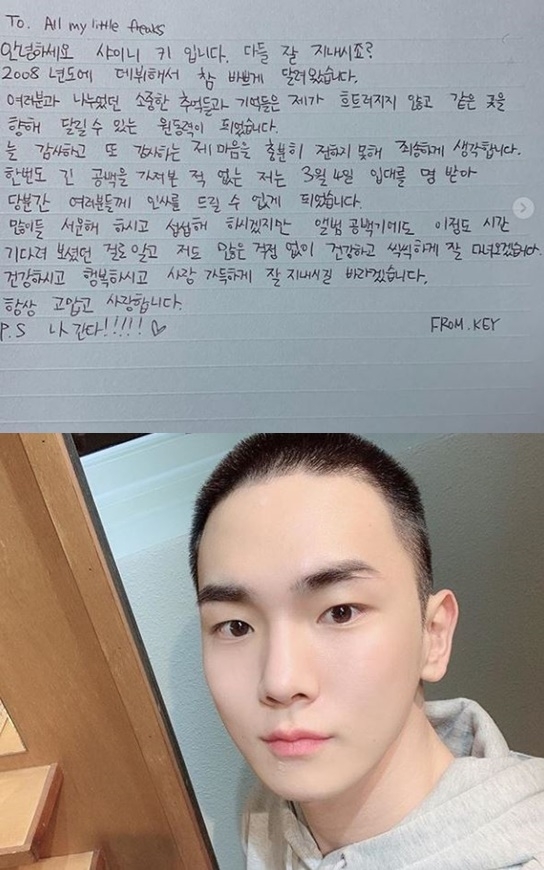 To. All my little freaks
안녕하세요 샤이니 키 입니다. 다들 잘 지내시죠?
2008년도에 데뷔해서 참 바쁘게 달려왔습니다.
여러분과 나누었던 소중한 추억들과 기억들은 제가 흐트러지지 않고 같은 곳을
향해 달릴 수 있는 원동력이 되었습니다.
늘 감사하고 또 감사하는 제 마음을 충분히 전하지 못해 죄송하게 생각합니다.
한번도 긴 공백을 가져본 적 없는 저는 3월 4일 입대를 명 받아
당분간 여러분들께 인사를 드릴 수 없게 되었습니다.
많이들 서운해 하시고 섭섭해 하시겠지만 앨범 공백기에도 이정도 시간
기다려 보셨던 걸로 알고 저도 많은 걱정 없이 건강하고 씩씩하게 잘 다녀오겠습니다.
건강하시고 행복하시고 사랑 가득하게 잘 지내시길 바라겠습니다.
항상 고맙고 사랑합니다.
P.S 나 간다!!!!! ♡ FROM. KEY